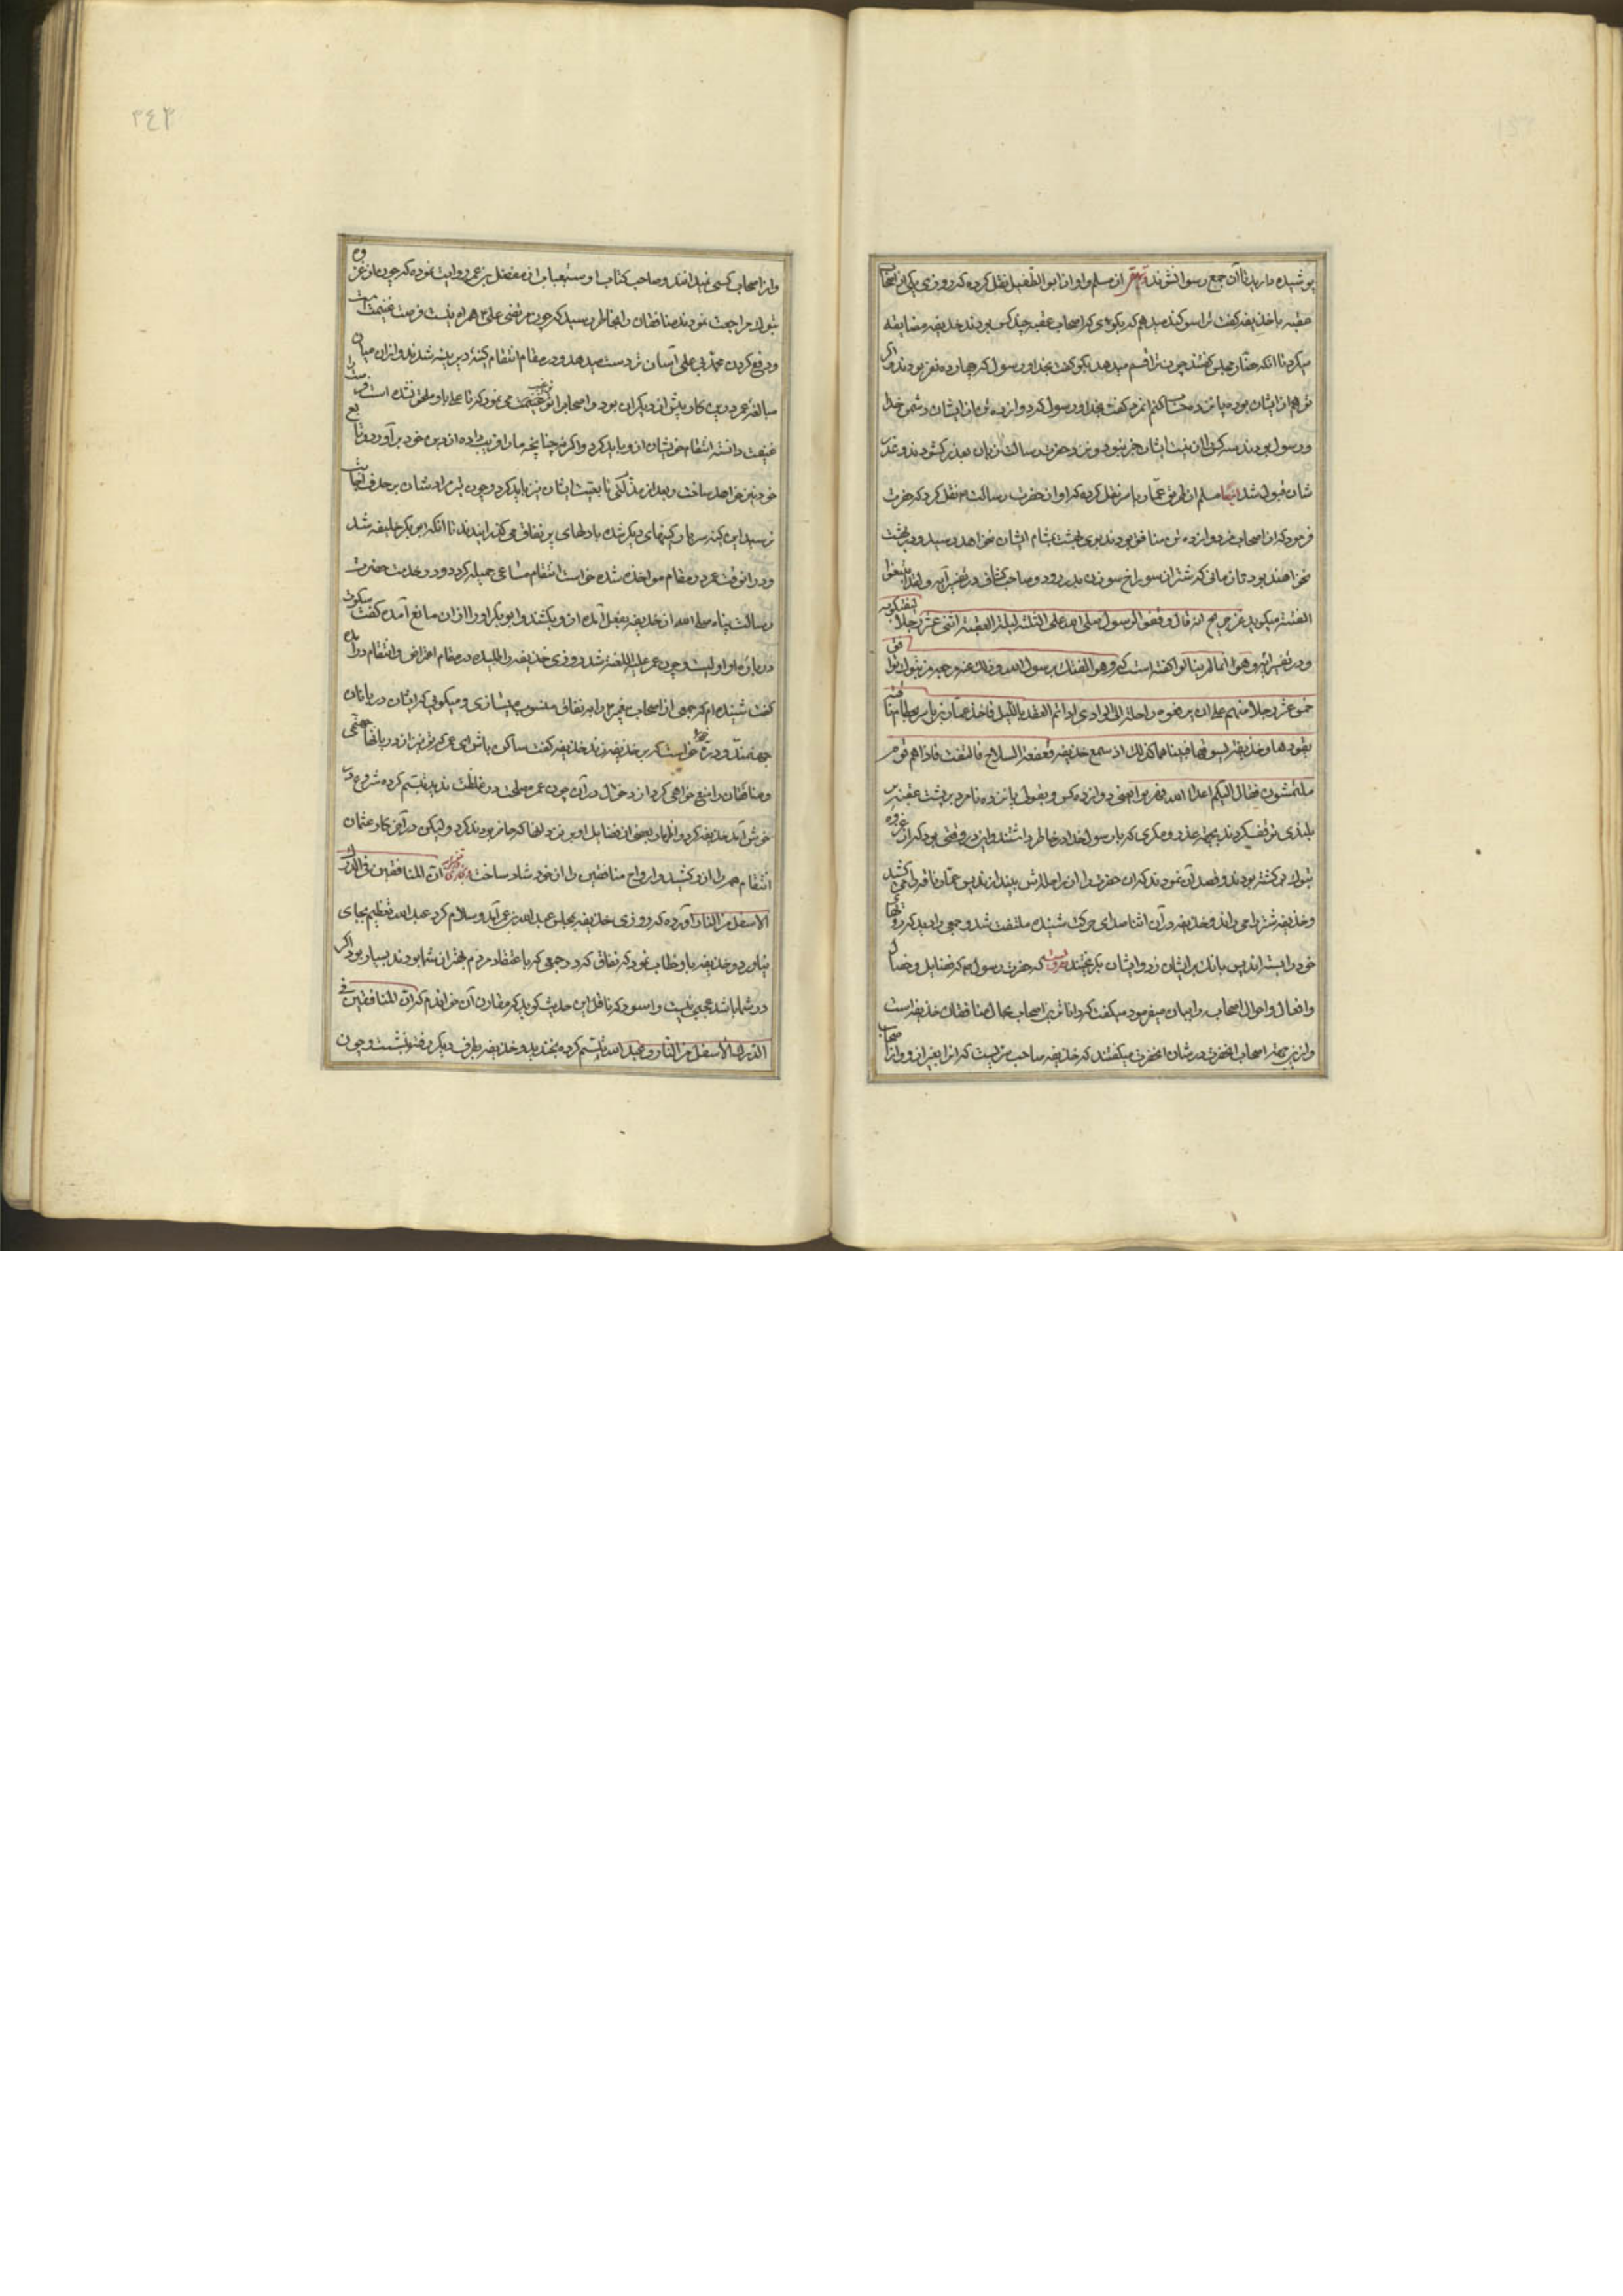 پوشیده دارید تا آن جمع رسوا نشوند از مسلم و او از ابو الطفیل نقل کرده که روزی یکی از اصحاب
عقبه با حذیفه گفت ترا سوگند میدهم که بگوی که اصحاب عقبه چند کس بودند حذیفه مضایقه
میکرد تا آنکه حضار مجلس گفتند چون ترا قسم میدهد بگو گفت بخدا و رسول که چهارده نفر بودند و اگر
تو هم از ایشان بوده پانزده حساب کنم گفت بخدا و رسول که دوازده تن از ایشان دشمن خدا
و رسول بودند و نزد حضرت رسالت زبان بعذر گشودند و عذر
شان قبول شد ایضا مسلم از طریق عمار یاسر نقل کرده که او از حضرت رسالت نقل کرد که حضرت
فرمود که از اصحاب من دوازده تن منافق بودند بوی بهشت بمشام ایشان نخواهد رسید و در بهشت
نخواهند بود تا زمانی که شتر از سوراخ سوزن بدر رود و صاحب کشاف در تفسیر آیه و لقد ابتغوا
الفتنه میگوید عن جریج انه قال وقفوا لرسول صلی الله علی الثنیة لیلة العقبة اثنی عشر رجلا لیفتکوا به
و در تفسیر آیه و هموا بما لم ینالوا گفته است که و هو الفتک برسول الله و ذلک عند مرجعه من تبوک توافق
خمس عشر رجلا منهم علی ان یدفعوه عن راحلته الی الوادی اذا تسنم العقبة باللیل فاخذ عمار بن یاسر بخطام ناقته
یقودها و حذیفه یسوقها فبینا هما کذلک اذ سمع حذیفه و قعقعة السلاح فالتفت فاذا هم قوم
ملتثمون فقال الیکم اعداء الله فهربوا یعنی دوازده کس و بقول پانزده نامرد بر پشت عقبه بر
بلندی توقف کردند بجهة عذر و مکری که با رسول خدا در خاطر داشتند و این در وقتی بود که از غزوه
تبوک برگشته بودند و قصد آن نمودند که آن حضرت را از راحله اش بیندازند پس عمار ناقه را می کشید
و حذیفه شتر را می راند و حذیفه در آن اثنا صدای حرکت شنیده ملتفت شد و جمعی را دید که رویهای
خود را بسته اند پس بانک بر ایشان زد و ایشان بگریختند که حضرت رسول هر که فضایل و خصال
و افعال و احوال اصحاب را بیان میفرمود میگفت که داناترین اصحاب بحال منافقان حذیفه است
و ازین جهة اصحاب آنحضرت در شان آنحضرت میگفتند که حذیفه صاحب سریست که آنرا بغیر از او از اصحاب
۲۴۳
و از اصحاب کسی نمیدانند و صاحب کتاب استیعاب از مفضل بن عمر روایت نموده که چون از غزوه
تبوک مراجعت نمودند منافقان را بخاطر رسید که چون مرتضی علی همراه نیست فرصت غنیمت است
و دفع کردن محمد بی علی آسان تر دست میدهد و در مقام انتقام کینه دیرینه شدند و از آن میان
مبالغه عمر درین کار بیش از دیگران بود و اصحاب را ترغیب می نمود که تا علی باو ملحق نشده است فرصت را
غنیمت دانسته انتقام خویشان ازو باید کرد و اگرنه چنانچه ما را فریب داده از دین خود برآورد و تابع
خود نیز خواهد ساخت و بعد از مذلتی تابعیت ایشان نیز باید کرد و چون تیر مرادشان بر هدف اجابت
نرسید این کینه سربار کینهای دیگر شده با دلهای پر نفاق می گذرانیدند تا آنکه ابی بکر خلیفه شد
و در آنوقت عمر در مقام مواخذه شده خواست انتقام مساعی جمیله که در خدمت حضرت
رسالت پناه صلی الله از حذیفه بفعل آمده ازو بکشد و ابو بکر او را از آن مانع آمده گفت سکوت
درباره او اولیست و چون عمر علیه اللعنه شد روزی حذیفه را طلبیده در مقام اعراض و انتقام درآمده
گفت شنیده ام که جمعی از اصحاب پیغمبر را به نفاق منسوب میسازی و میگویی که ایشان دربانان
جهنمند و دره خود خواست که بر حذیفه زند حذیفه گفت ساکن باش ای عمر که تو نیز از دربانهای جهنمی
و منافقان را منع خواهی کرد از دخول در آن چون عمر مصلحت در غلظت ندید تبسم کرده شروع در
خوش آمد حذیفه کرد و اظهار بعضی از فضایل او بر آنها که حاضر بودند کرد و لیکن در آخر کار عثمان
انتقام عمر را ازو کشید و ارواح منافقین را از خود شاد ساخت ان المنافقین فی الدرک
الاسفل من النار آورده که روزی حذیفه بمجلس عبدالله بن عمر آمد و سلام کرد عبدالله تعظیم بجای
نیاورد و حذیفه باو خطاب نمود که نفاق که در جمعی که باعتقاد مردم بهتر از شما بودند بسیار بود اگر
در شما باشد عجبی نیست و اسود که ناقل این حدیث گوید که مقارن آن خواندم که ان المنافقین فی
الدرک الاسفل من النار و عبدالله تبسم کرده بخندید و حذیفه بطرف دیگر رفته بنشست و چون